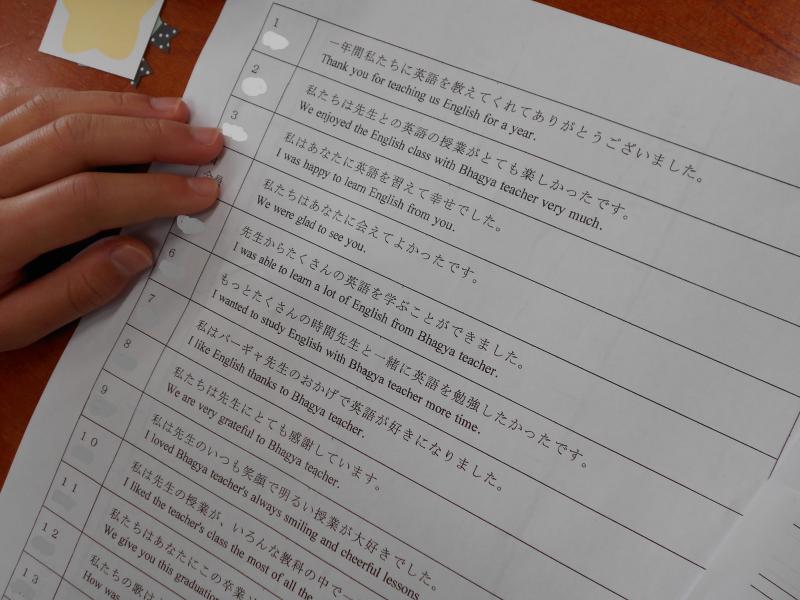 1
一年間私たちに英語を教えてくれてありがとうございました。
Thank you for teaching us English for a year.
2
私たちは先生との英語の授業がとても楽しかったです。
We enjoyed the English class with Bhagya teacher very much.
3
私はあなたに英語を習えて幸せでした。
I was happy to learn English from you.
全員
私たちはあなたに会えてよかったです。
We were glad to see you.
先生からたくさんの英語を学ぶことができました。
I was able to learn a lot of English from Bhagya teacher.
6
もっとたくさんの時間先生と一緒に英語を勉強したかったです。
I wanted to study English with Bhagya teacher more time.
7
私はバーギャ先生のおかげで英語が好きになりました。
I like English thanks to Bhagya teacher.
8
私たちは先生にとても感謝しています。
We are very grateful to Bhagya teacher.
9
私は先生のいつも笑顔で明るい授業が大好きでした。
I loved Bhagya teacher's always smiling and cheerful lessons.
10
私は先生の授業が、いろんな教科の中で一
I liked the teacher's class the most of all the
11
私たちはあなたにこの卒業
We give you this graduation
12
私たちの歌は
How was
13